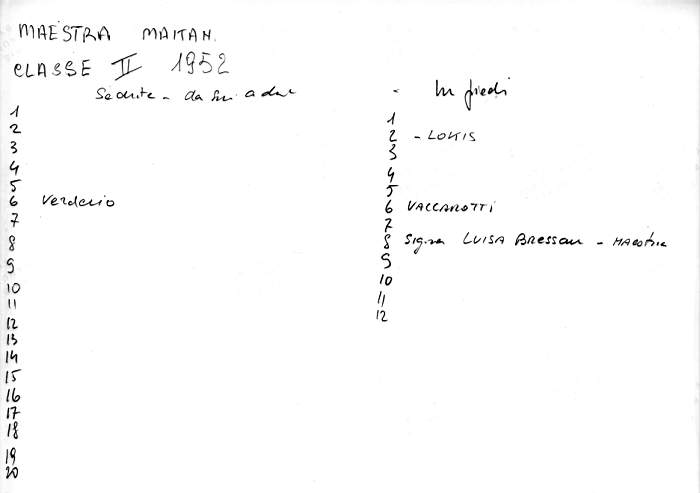 MAESTRA MAITAN.
CLASSE II 1952
Sedute - da sin a dex
1
2
3
4
5
6 Verderio
7
8
9
10
11
12
13
14
15
16
17
18
19
20
- In piedi
1
2 - LOKIS
3
4
5
6 VACCAROTTI
7
8 Sig.ra LUISA BRESSAN - MAESTRA
9
10
11
12